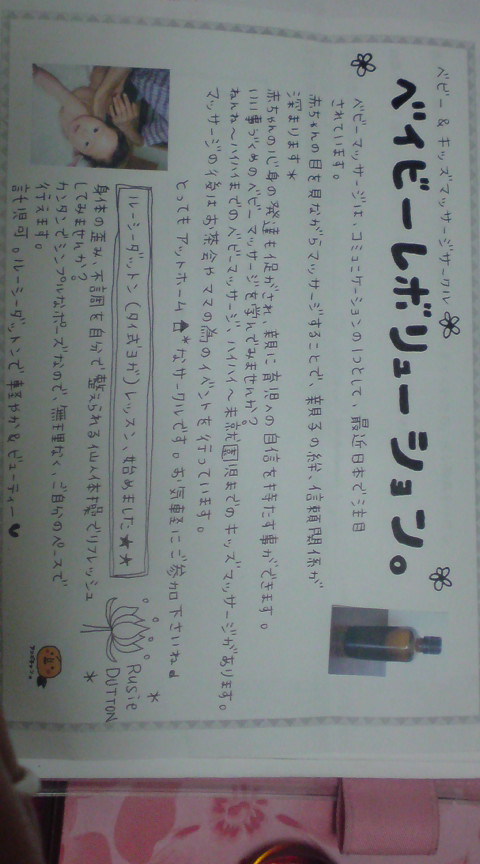 ベビー & キッズマッサージサークル
ベイビーレボリューション。
ベビーマッサージは、コミュニケーションの1つとして、最近日本で注目
されています。
赤ちゃんの目を見ながらマッサージすることで、親子の絆、信頼関係が
深まります*
赤ちゃんの心身の発達も促がされ、親に育児への自信を持たす事ができます。
いい事づくめのベビーマッサージを学んでみませんか?
ねんね〜ハイハイまでのベビーマッサージ、ハイハイ〜未就園児までのキッズマッサージがあります。
マッサージの後はお茶会やママの為のイベントを行っています。
とっても アットホーム*なサークルです。お気軽にご参加下さいね♩
ルーシーダットン(タイ式ヨガ)レッスン、始めました★★
身体の歪み、不調を自分で整えられる仙人体操でリフレッシュ
してみませんか?
カンタンでシンプルなポーズなので、無理なくご自分のペースで
行えます。
ルーシーダットンで軽やか&ビューティー♥
Rusie
DUTTON